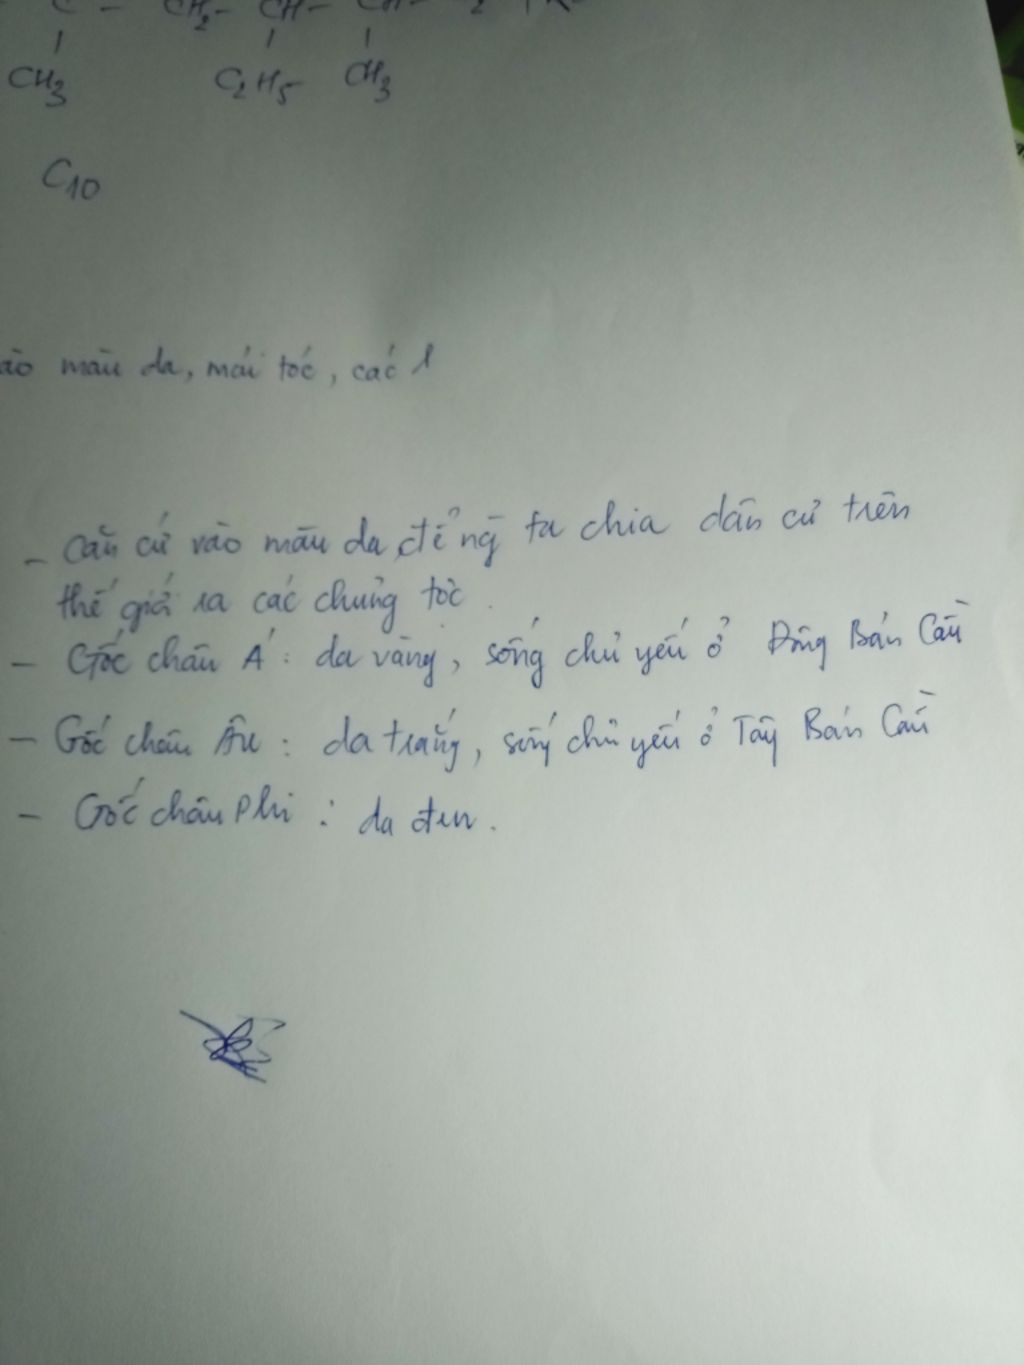 C - CH2- CH- CH-
CH3 C2H5- CH3
C10
ào màu da, mái tóc, các l
- Căn cứ vào màu da, để ng ta chia dân cư trên
thế giới ra các chủng tộc.
- Gốc châu Á: da vàng, sống chủ yếu ở Đông Bán Cầu
- Gốc châu Âu: da trắng, sống chủ yếu ở Tây Bán Cầu
- Gốc châu Phi: da đen.